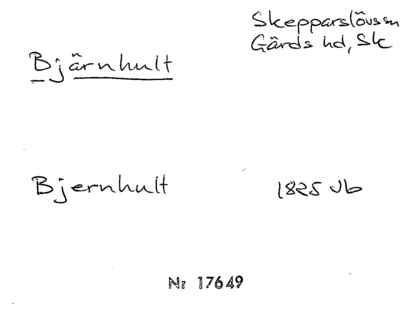 Skepparslövs sn
Gärds hd, Sk
Bjärnhult
Bjernhult 1825 Jb
Nr 17649